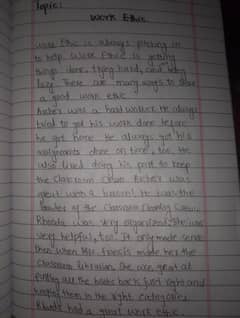 Topic:
Work Ethic
Work Ethic is always pitching in
to help. Work Ethic is getting
things done, trying hard, and
lazy. There are many ways to show
a good work ethic
Archer was a hard worker. He always
tried to get his work done before
he got home. He always got his
assignments done on time, too. He
also liked doing his part to keep
the classroom clean. Archer was
great with a broom! He was the
leader of the Classroom Cleaning Crew.
Rhoda was very organized. She was
very helpful, too. It only made sense
then when Mrs. Francis made her the
classroom librarian. She was great at
putting all the books back just right and
them in the right categories.
had a great work ethic.